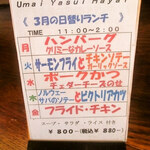 Umai Yasui Hayai
《3月の日替りランチ》
TIME 11:00〜2:00
月 ハンバーグ
クリミーなカレーソース
火 サーモンフライとチキンソテー
ガーリックソース
水 ポークカツ
チェダーチーズのせ
木 ノルウェーサバのソテーとビクトリアカツ
金 フライド・チキン
スープ・サラダ・ライス付き
¥800-(税込¥880-)